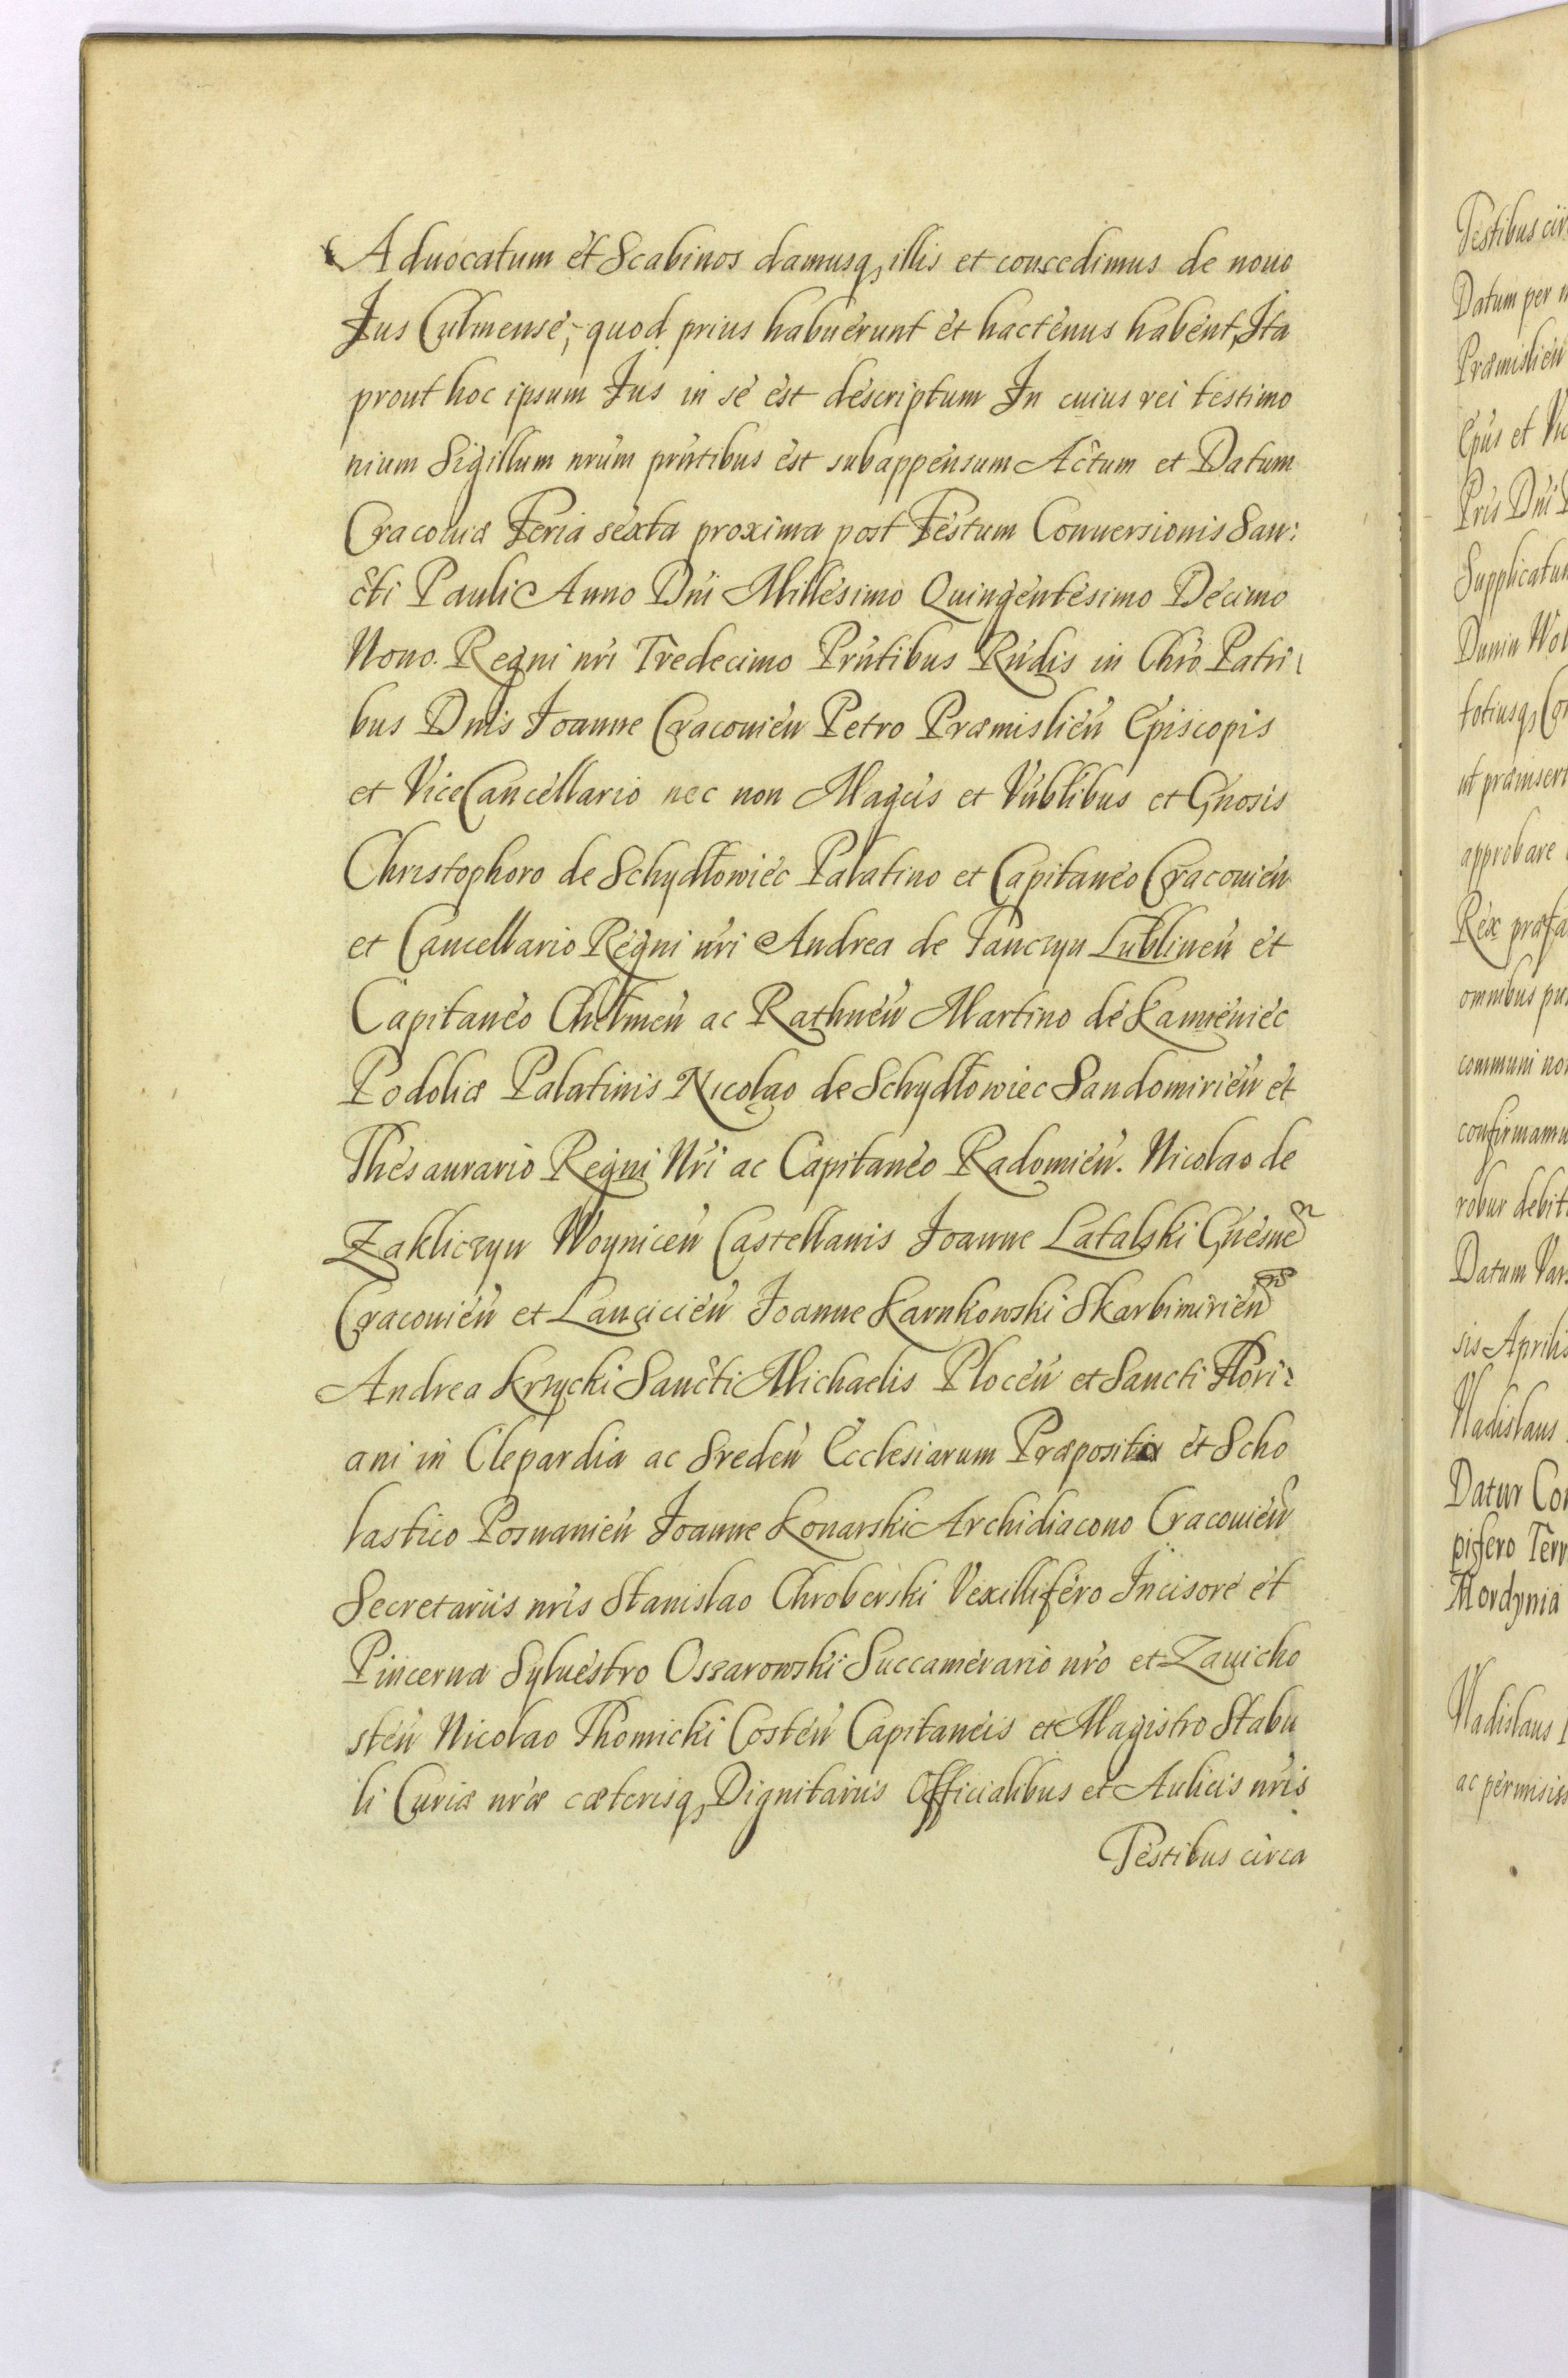 Aduocatum et Scabinos damusq, illis et concedimus de nouo
Jus Culmense, quod prius habuerunt et hactenus habent, Ita
prout hoc ipsum Jus in se est descriptum In cuius rei testimo
nium Sigillum nrum prntibus est subappensum Actum et Datum
Cracouiæ Feria sexta proxima post Festum Conuersionis San:
cti Pauli Anno Dni Millesimo Quingentesimo Decimo
Nono. Regni nri Tredecimo Prntibus Rndis in Chro Patri
bus Dnis Joanne Cracouien Petro Præmislien Episcopis
et ViceCancellario nec non Magcis et Vnblibus et Gnosis
Christophoro de Schydłowiec Palatino et Capitaneo Cracouien
et Cancellario Regni nri Andrea de Tanczyn Lublinen et
Capitaneo Chelmen ac Rathnen Martino de Kamieniec
Podoliæ Palatinis Nicolao de Schydłowiec Sandomirien et
Thesaurario Regni Nri ac Capitaneo Radomien. Nicolao de
Zakliczyn Woynicen Castellanis Joanne Latalski Gnesnen
Cracouien et Lancicien Joanne Karnkowski Skarbimirien
Andrea Krzycki Sancti Michaelis Plocen et Sancti Flori:
ani in Clepardia ac Sreden Ecclesiarum Præpositis et Scho
lastico Posnanien Joanne Konarski Archidiacono Cracouien
Secretariis nris Stanislao Chroberski Vexillifero Incisore et
Pincerna Syluestro Ossarowski Succamerario nro et Zauicho
sten Nicolao Thomicki Costen Capitaneis et Magistro Stabu
li Curiæ nræ cæterisq, Dignitariis Officialibus et Aulicis nris
Testibus circa
Testibus cir
Datum per
Præmislien
Epus et Vic
Pris Dni
Supplicatum
Dunin Wol
totiusq,
ut præinsert
approbare
Rex præfa
omnibus pu
communi no
confirmamu
robur debit
Datum Vars
sis Aprilis
Vladislaus
Datur Con
pifero Terr
Mordynia
Vladislaus
ac permisiss